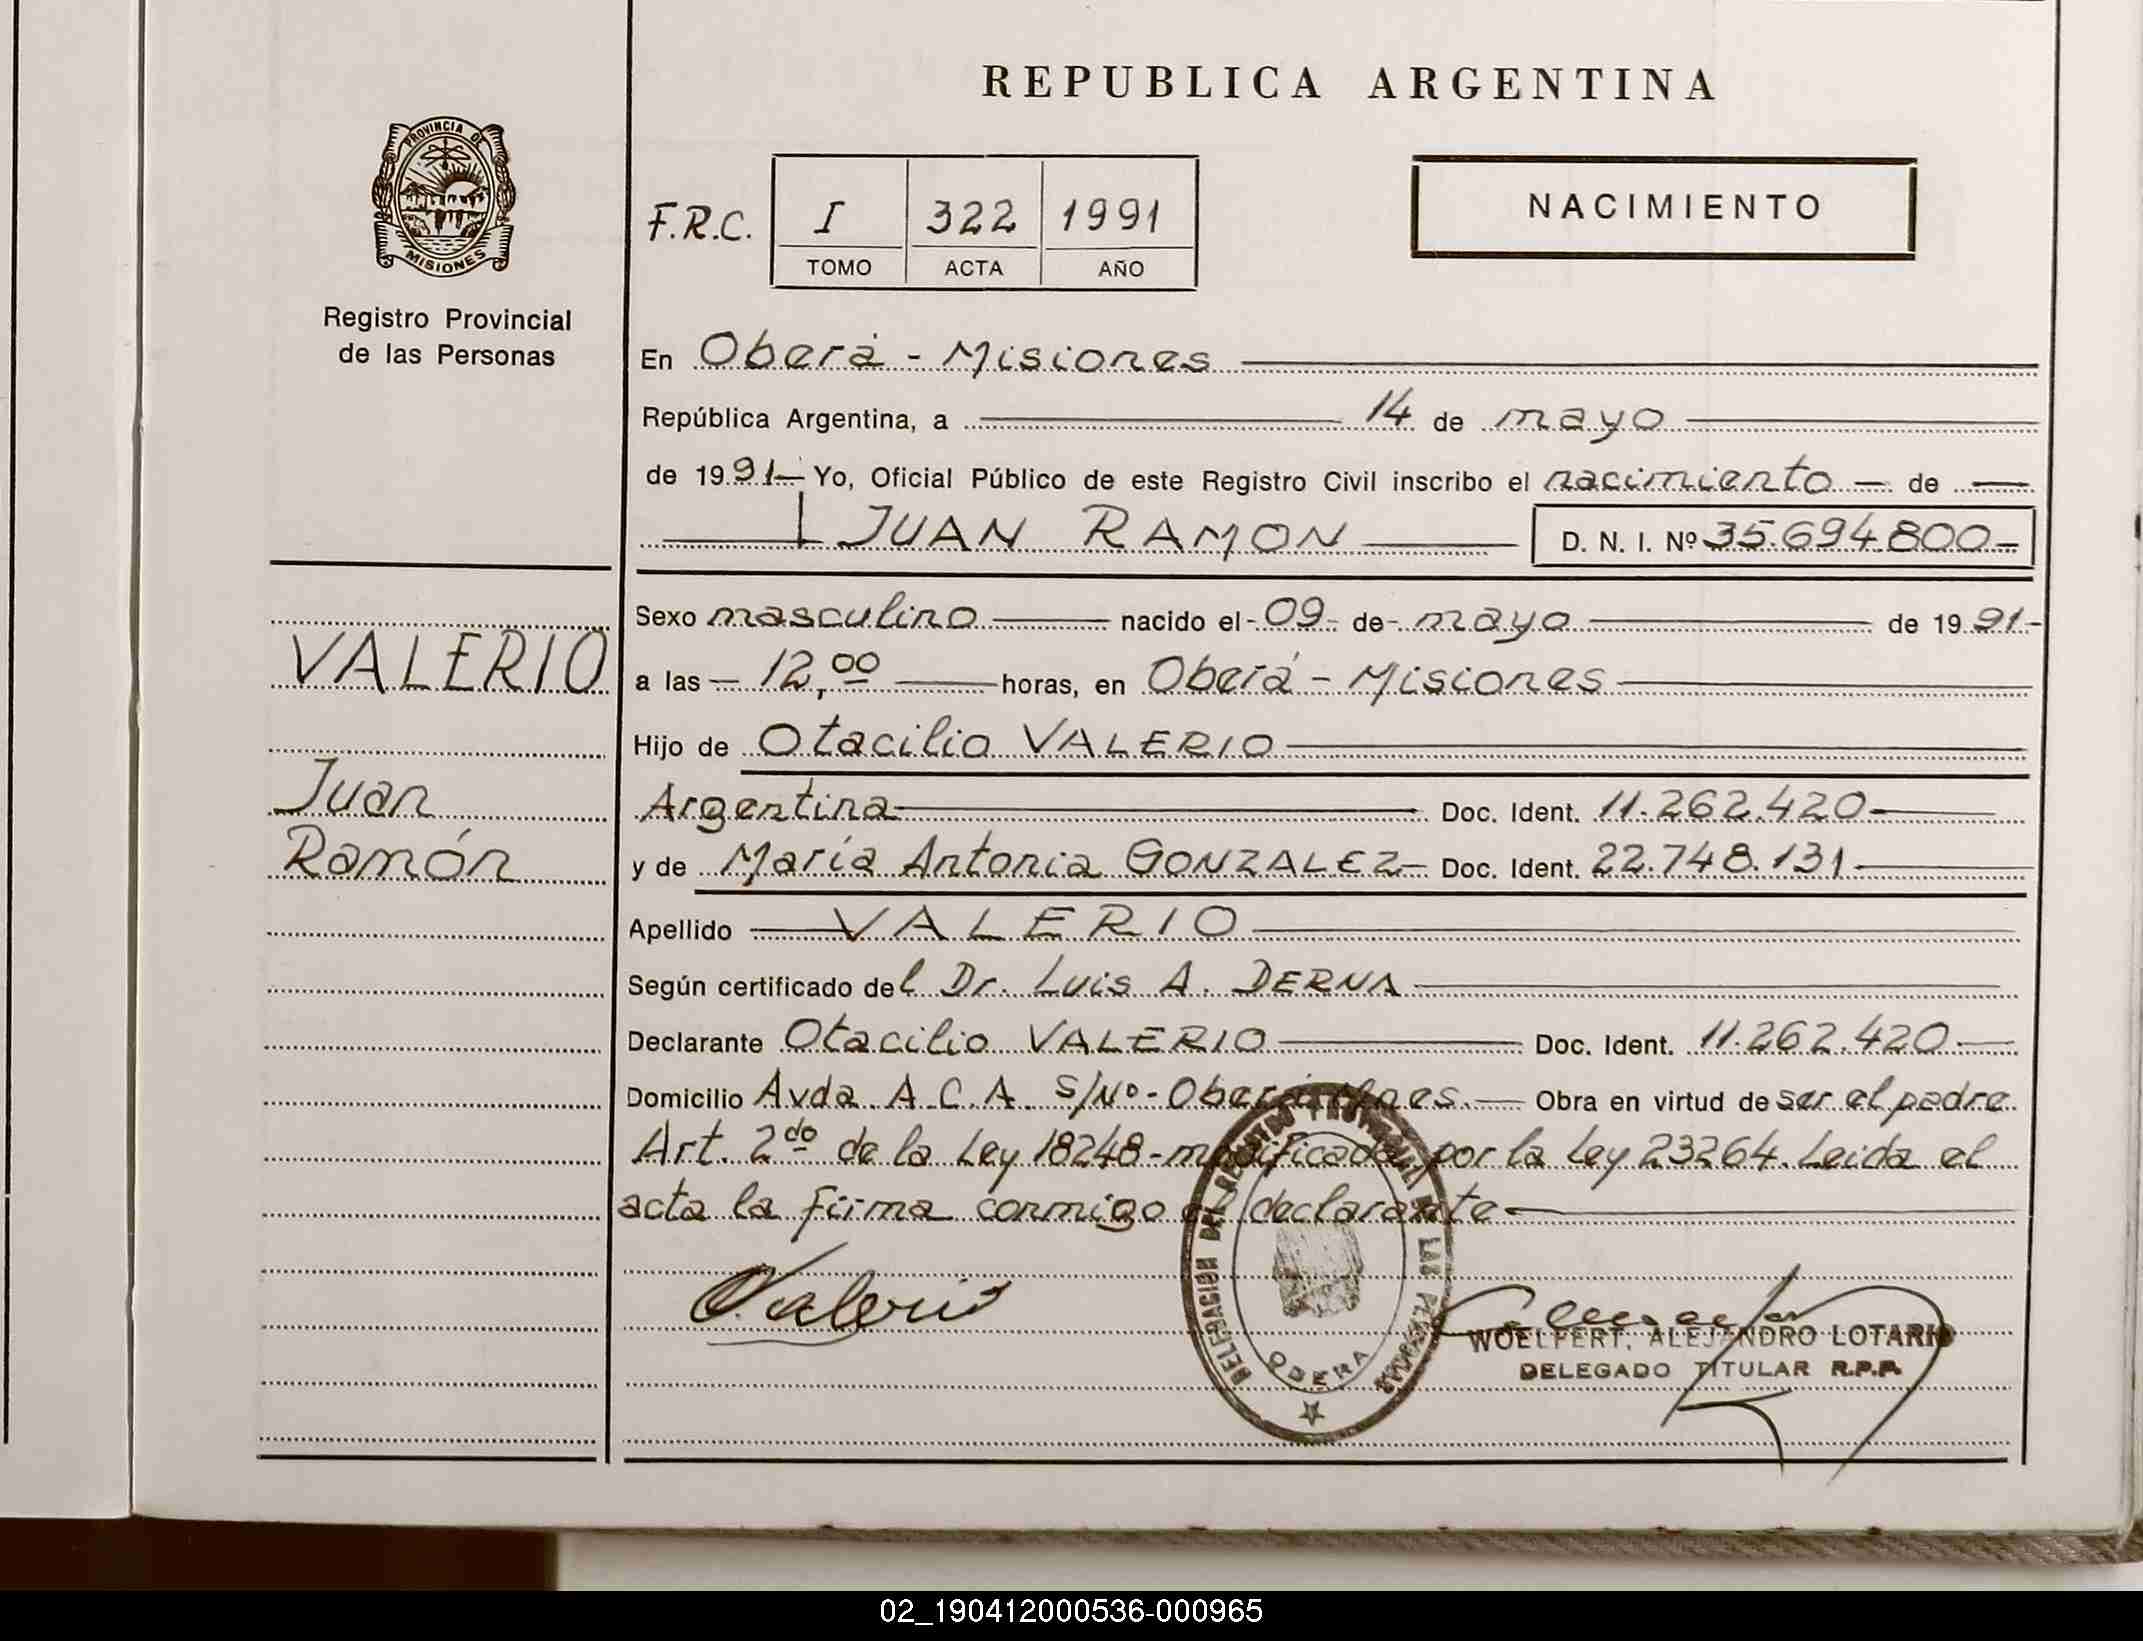 REPUBLICA ARGENTINA
PROVINCIA DE MISIONES
Registro Provincial
de las Personas
F.R.C. I 322 1991
TOMO ACTA AÑO
NACIMIENTO
En Oberá - Misiones
República Argentina, a 14 de mayo
de 1991 - Yo, Oficial Público de este Registro Civil inscribo el nacimiento - de
JUAN RAMON D. N. I. Nº 35.694.800-
VALERIO
Juan
Ramón
Sexo masculino nacido el - 09 - de - mayo de 1991 -
a las - 12,00 horas, en Oberá - Misiones
Hijo de Otacilio VALERIO
Argentina Doc. Ident. 11.262.420-
y de María Antonia GONZALEZ - Doc. Ident. 22.748.131-
Apellido VALERIO
Según certificado del Dr. Luis A. DERNA
Declarante Otacilio VALERIO Doc. Ident. 11.262.420-
Domicilio Avda A.C.A. S/Nº - Oberá Mnes. - Obra en virtud de ser el padre
Art. 2do de la Ley 18248 - modificada por la Ley 23264. Leida el
acta la firma conmigo el declarante -
O.Valerio
DELEGACION DEL REGISTRO PROVINCIAL DE LAS PERSONAS
OBERA
WOELFERT, ALEJANDRO LOTARIO
DELEGADO TITULAR R.P.P.
02_190412000536-000965